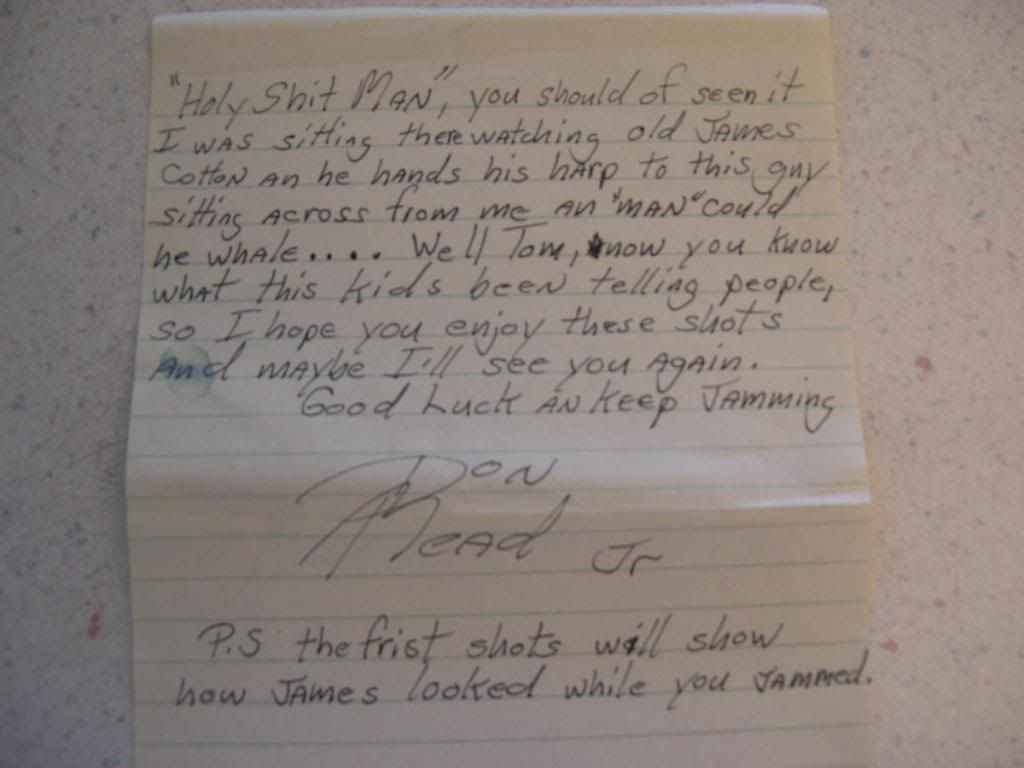 "Holy Shit MAN", you should of seen it
I was sitting there watching old JAMES
Cotton an he hands his harp to this guy
sitting across from me an "MAN" could
he whale.... Well Tom, now you know
what this kids been telling people,
so I hope you enjoy these shots
And maybe I'll see you again.
Good Luck an keep Jamming
Don
Mead Jr
P.S the frist shots will show
how James looked while you jammed.